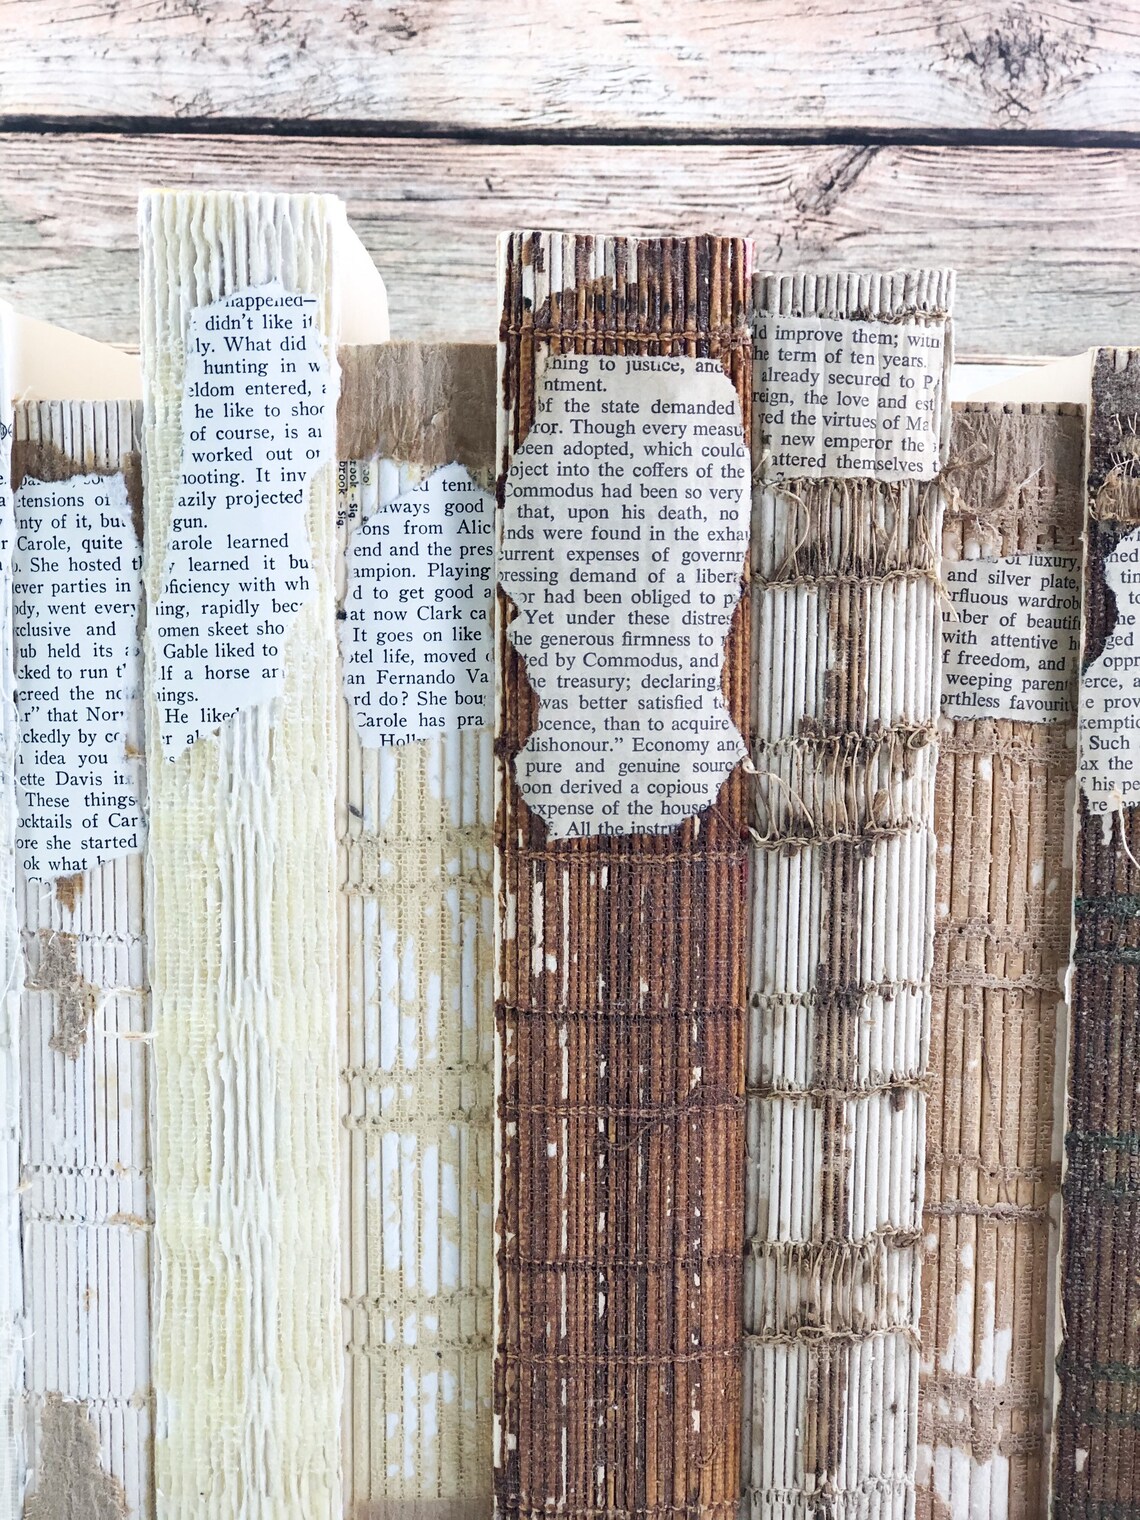 tensions of
nty of it, but
Carole, quite
She hosted
ever parties in
ody, went every
clusive and
ub held its
cked to run
creed the
" that Nor
ckedly by
idea you
ette Davis
These things
ocktails of Car
ore she started
ok what
happened—
didn't like it
ly. What did
hunting in w
eldom entered,
he like to shoo
of course, is an
worked out or
hooting. It inv
azily projected
gun.
arole learned
y learned it bu
oficiency with wh
ing, rapidly beca
omen skeet sho
Gable liked to
lf a horse an
nings.
He liked
er
brook - Sig.
always good
ons from Alic
end and the pres
ampion. Playing
d to get good a
at now Clark ca
It goes on like
otel life, moved
an Fernando Va
rd do? She bou
Carole has pra
Holly
hing to justice, and
ntment.
of the state demanded
ror. Though every measu
been adopted, which could
bject into the coffers of the
Commodus had been so very
that, upon his death, no
nds were found in the exha
current expenses of governm
pressing demand of a libera
or had been obliged to p
Yet under these distres
the generous firmness to
ted by Commodus, and
he treasury; declaring,
was better satisfied t
ocence, than to acquire
dishonour." Economy and
pure and genuine sourc
oon derived a copious s
expense of the househ
f. All the instru
ld improve them; with
he term of ten years.
already secured to P
reign, the love and est
red the virtues of Ma
new emperor the
attered themselves t
of luxury,
and silver plate,
rfluous wardrobe
mber of beautif
with attentive h
f freedom, and
weeping parent
orthless favourit
hed
tin
to
he
ged
oppr
erce, a
e prov
xemptio
Such
ax the
his pe
re